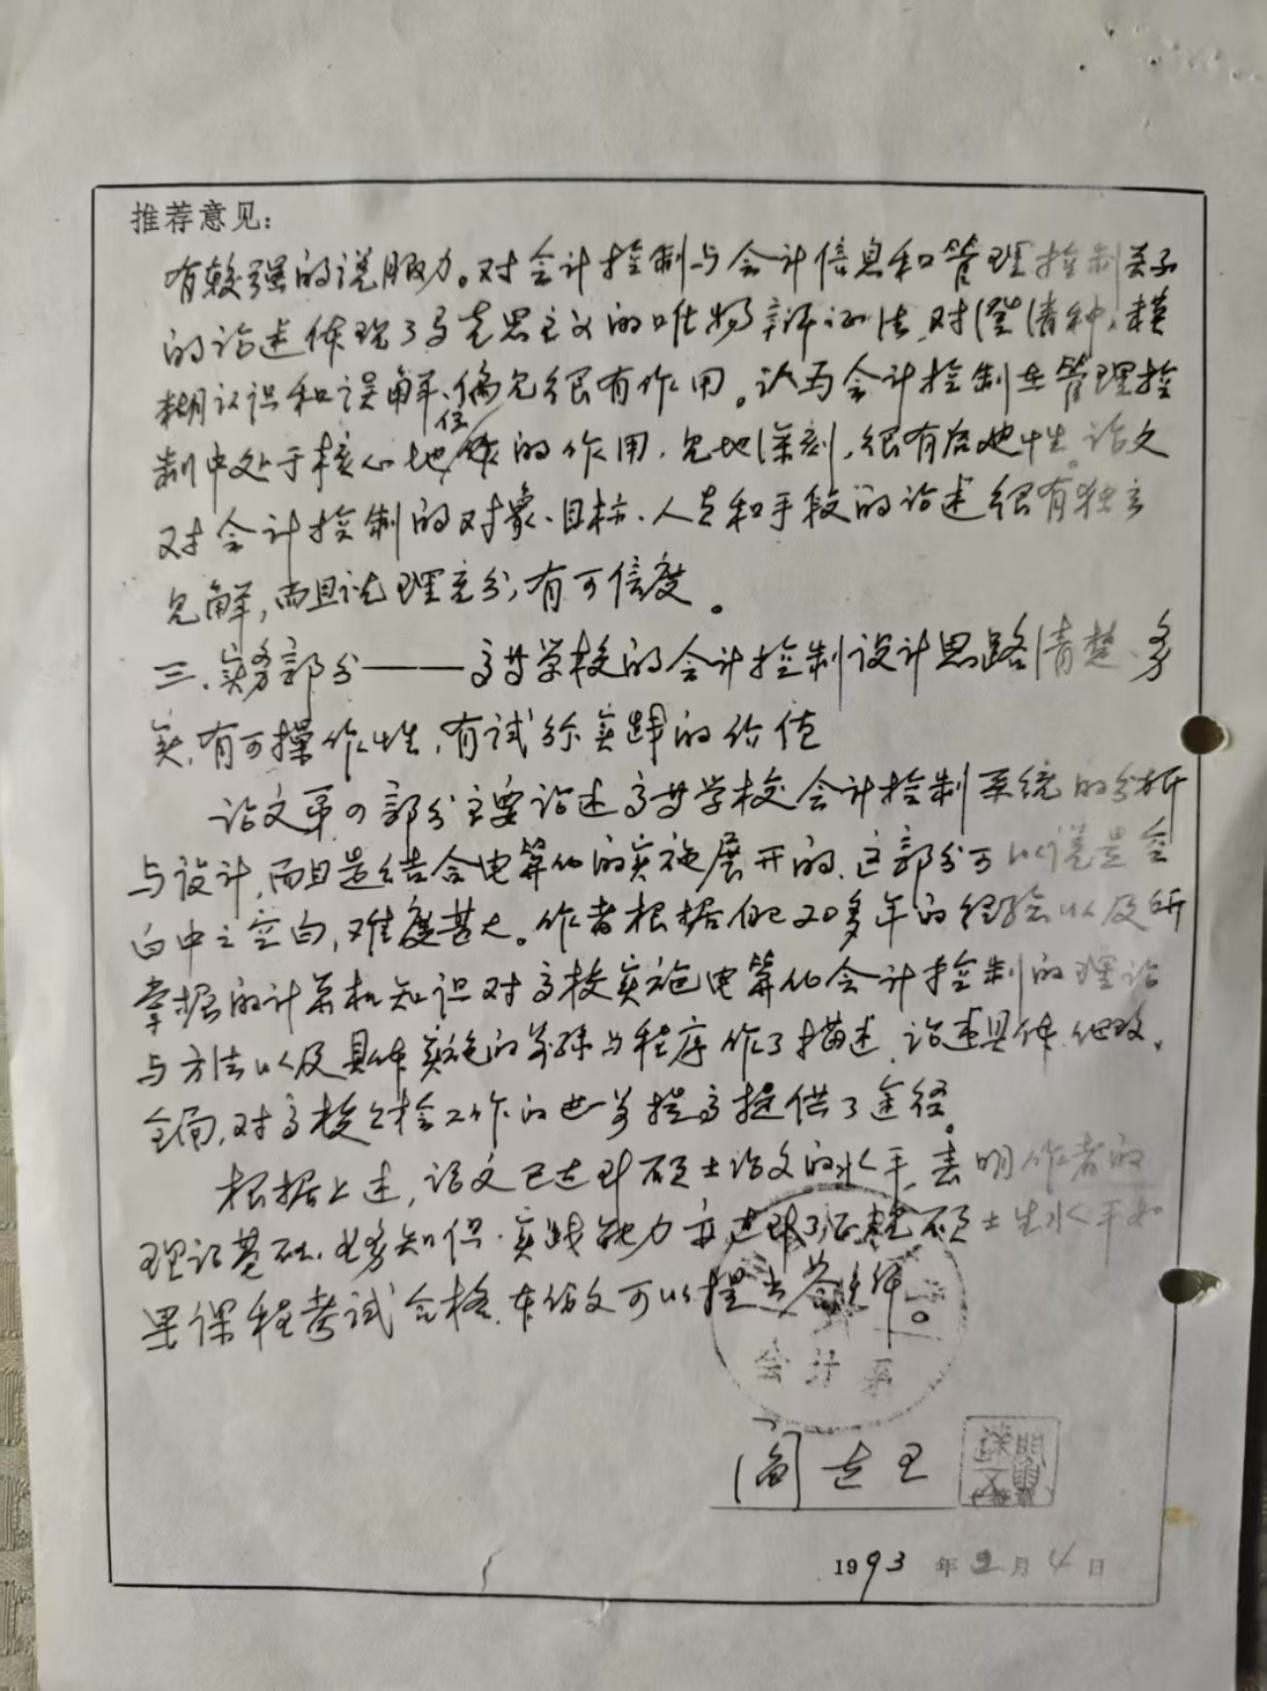 推荐意见:
有较强的说服力。对会计控制与会计信息和管理控制关系
的论述体现了马克思主义的唯物辩证法,对澄清种种模
糊认识和误解、偏见很有作用。认为会计控制在管理控
制中处于核心地位的作用,见地深刻,很有启迪性。论文
对会计控制的对象、目标、人员和手段的论述很有独立
见解,而且说理充分,有可信度。
三、实务部分——高等学校的会计控制设计思路清楚、务
实,有可操作性,有试行实践的价值
论文第四部分主要论述高等学校会计控制系统的分析
与设计,而且是结合电算化的实施展开的,这部分可以说是空
白中之空白,难度甚大。作者根据自己20多年的经验以及所
掌握的计算机知识对高校实施电算化会计控制的理论
与方法以及具体实施的步骤与程序作了描述,论述具体、细致、
全面,对高校会计工作的进一步提高提供了途径。
根据上述,论文已达到硕士论文的水平,表明作者的
理论基础、业务知识、实践能力亦达到了硕士生水平如
果课程考试合格,本论文可以提出答辩。
会计系
阎达五
1993年2月4日